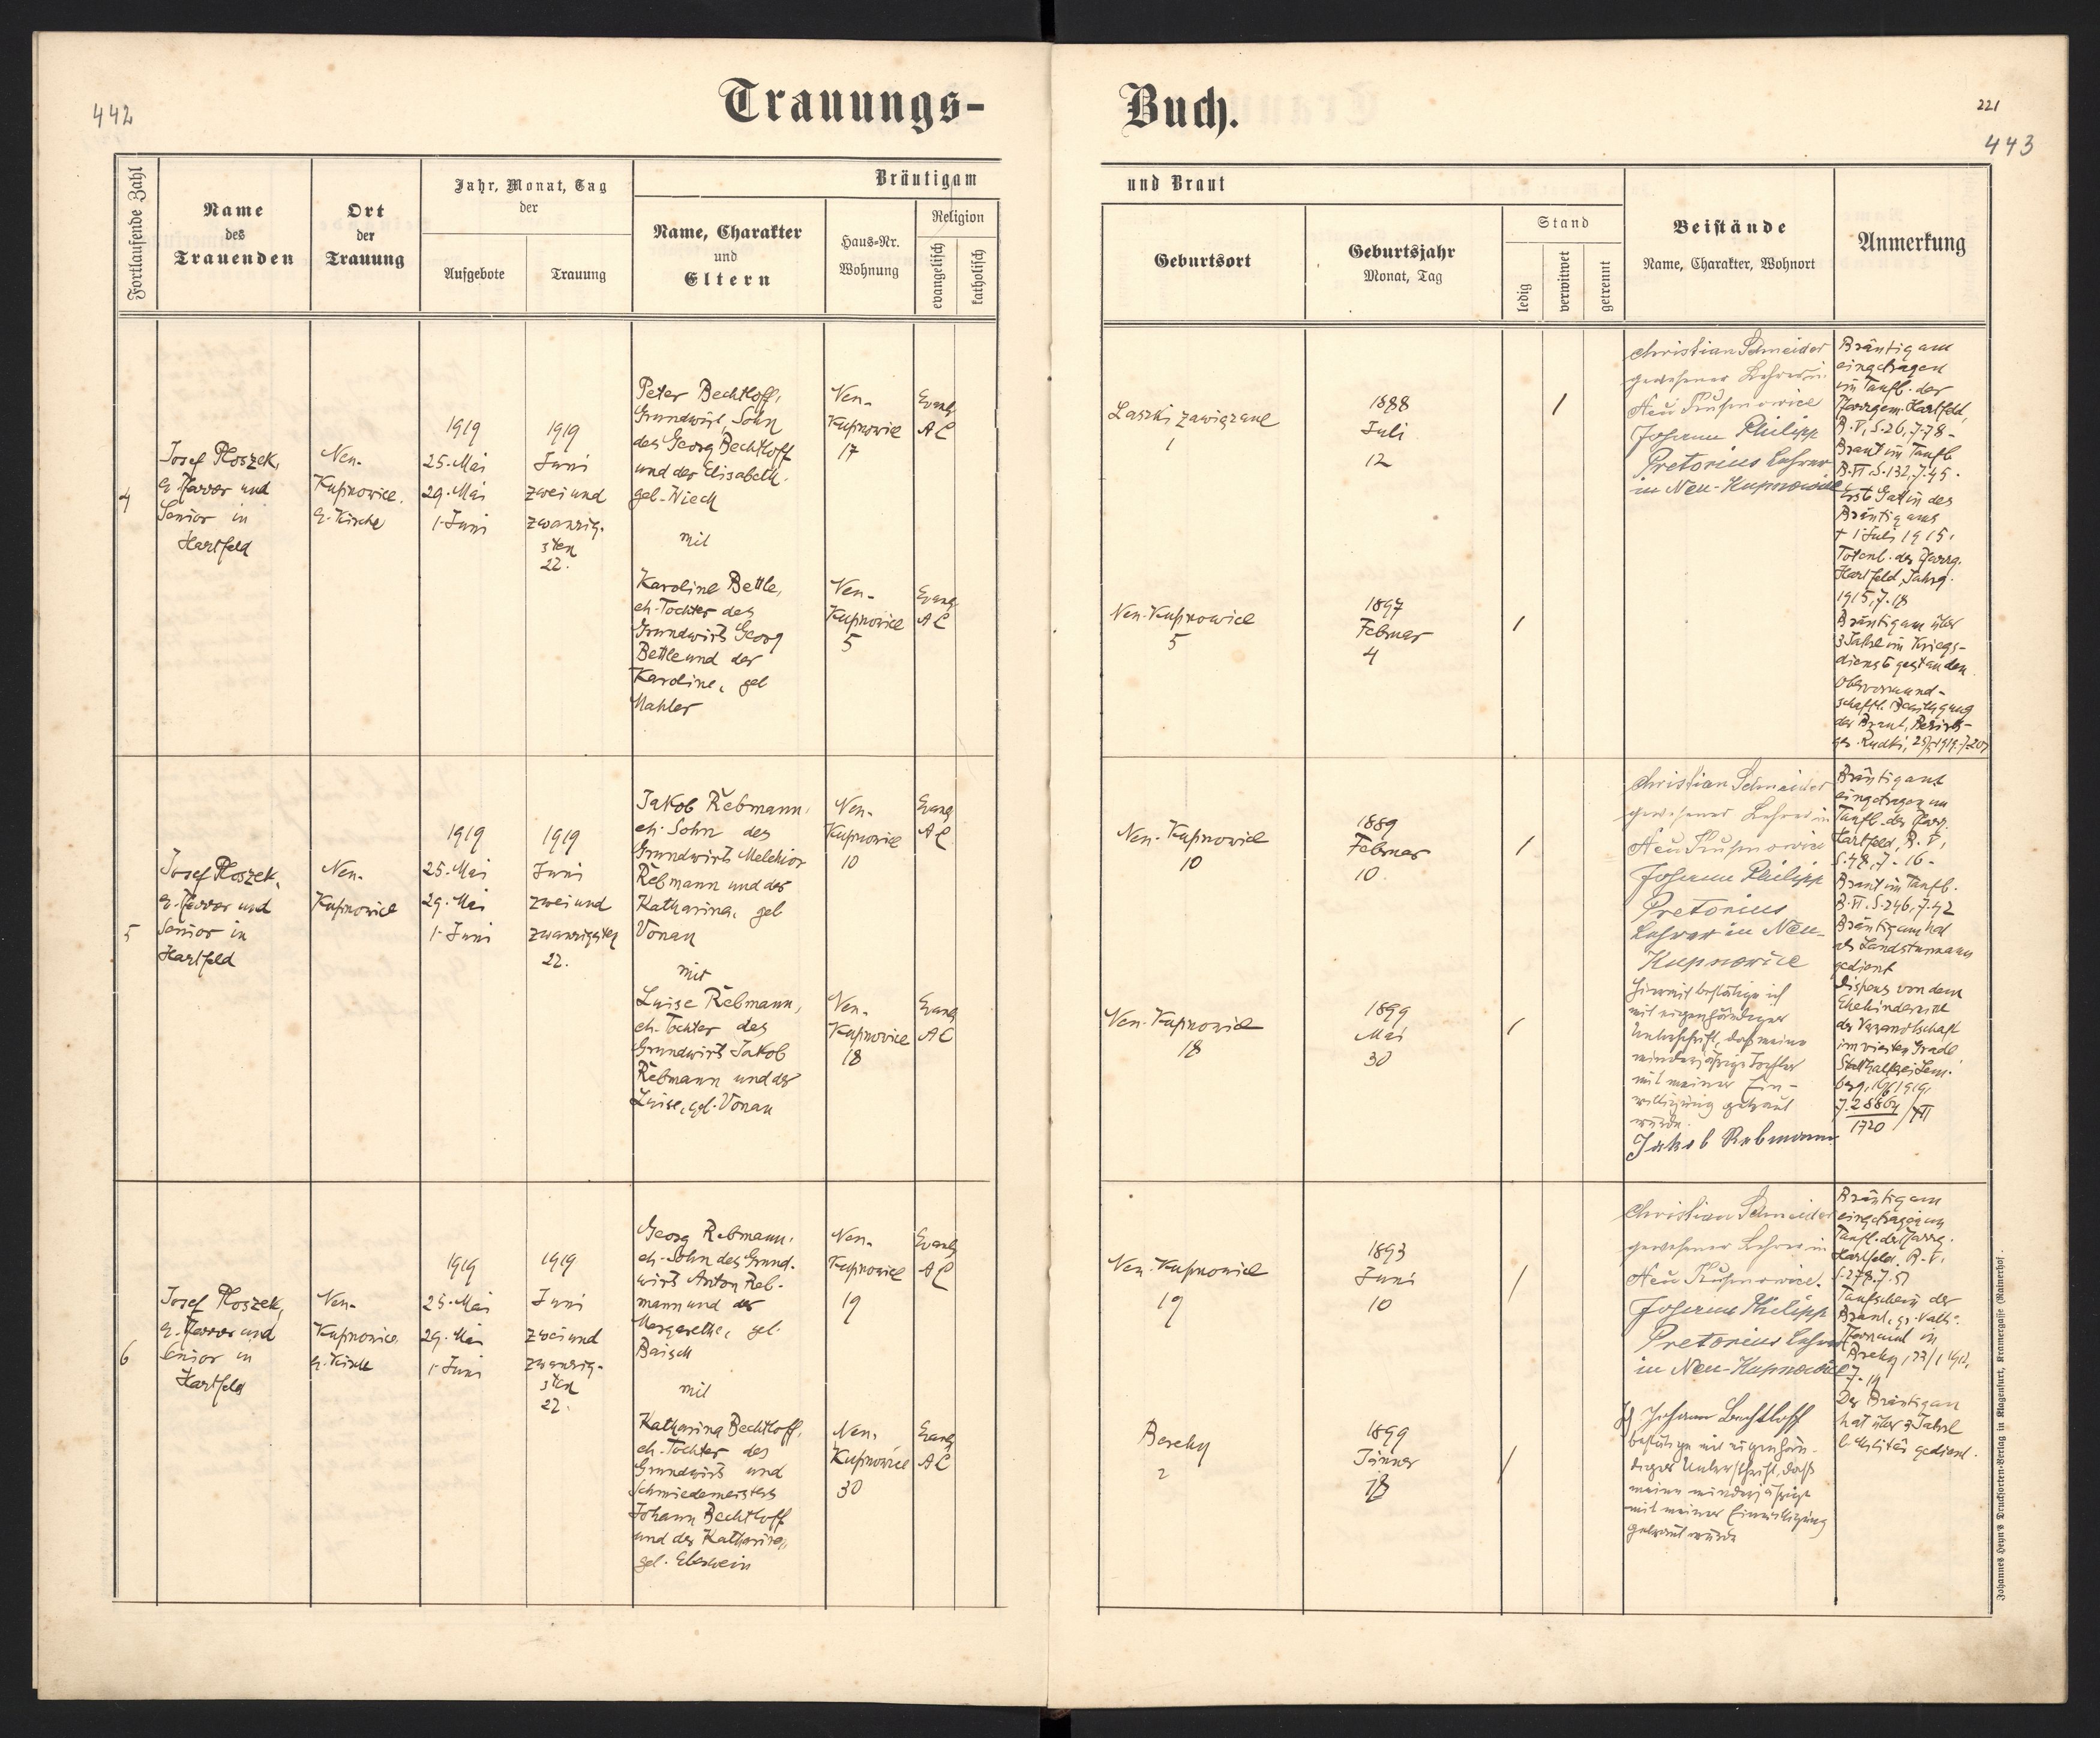 442
Trauungs-
Buch.
221
443
Fortlaufende Zahl
Name
des
Trauenden
Ort
der
Trauung
Jahr, Monat, Tag
der
Aufgebote
Trauung
Bräutigam
Name, Charakter
und
Eltern
Haus-Nr.
Wohnung
Religion
evangelisch
katholisch
und Braut
Geburtsort
Geburtsjahr
Monat, Tag
Stand
ledig
verwitwet
getrennt
Beistände
Name, Charakter, Wohnort
Anmerkung
4
Josef Ploszek,
e. Pfarrer und
Senior in
Hartfeld
Neu-
Kupnowice.
e. Kirche
1919
25. Mai
29. Mai
1. Juni
1919
Juni
zweiund
zwanzig-
sten
22.
Peter Bechtloff,
Grundwirt, Sohn
des Georg Bechtloff
und der Elisabeth,
geb.
mit
Karoline Bettle,
eh. Tochter des
Grundwirts Georg
Bettle und der
Karoline, geb
Mahler
Neu-
Kupnowice
17
Evang
AC
Neu-
Kupnowice
5
Evang
AC
Laszki zawiązane
1
1888
Juli
12
/
Neu-Kupnowice
5
1897
Februar
4
/
Christian Schneider
gewesener Lehrer in
Neu Kupnowice
Johann Philipp
Pretorius Lehrer
in Neu-Kupnowice
Bräutigam
eingetragen
im Taufb. der
Pfarrgem. Hartfeld,
B. V, S. 26, Z. 78-
Braut im Taufb
B. VI. S. 132, Z. 45.
Erste Gattin des
Bräutigams
† 1 Juli 1915.
Totenb. der Pfarrg.
Hartfeld, Jahrg.
1915, Z. 18
Bräutigam über
3 Jahre im Kriegs-
dienst gestanden
Obervormund-
schaftl. Bewilligung
der Braut, Bezirks-
ger. Rudki,
5
Josef Ploszek,
e. Pfarrer und
Senior in
Hartfeld
Neu-
Kupnowice
1919
25. Mai
29. Mai
1. Juni
1919
Juni
zweiund
zwanzigsten
22.
Jakob Rebmann,
eh. Sohn des
Grundwirts Melchior
Rebmann und der
Katharina, geb
Vonau
mit
Luise Rebmann,
eh. Tochter des
Grundwirts Jakob
Rebmann und der
Luise, geb. Vonau
Neu-
Kupnowice
10
Evang
AC
Neu-
Kupnowice
18
Evang
AC
Neu-Kupnowice
10
1889
Februar
10.
/
Neu-Kupnowice
18
1899
Mai
30
/
Christian Schneider
gewesener Lehrer in
Neu Kupnowice
Johann Philipp
Pretorius
Lehrer in Neu-
Kupnowice
Hiermit bestätige ich
mit eigenhändiger
Unterschrift, daß meine
minderjährige Tochter
mit meiner Ein-
willigung getraut
wurde.
Jakob Rebmann
Bräutigam
eingetragen im
Taufb. der Pfarrg.
Hartfeld, B. V,
S. 48, Z. 16-
Braut im Taufb.
B. VI. S. 246, Z. 42
Bräutigam hat
als Landsturmmann
gedient
Dispens von dem
Ehehindernisse
der Verwandtschaft
im vierten Grade,
Statthalterei Lem-
berg,
Z. 28864/VII
1720
6
Josef Ploszek,
e. Pfarrer und
Senior in
Hartfeld
Neu-
Kupnowice
e. Kirche
1919
25. Mai
29. Mai
1. Juni
1919
Juni
zweiund
zwanzig-
sten
22.
Georg Rebmann,
eh. Sohn des Grund-
wirts Anton Reb-
mann und der
Margarethe, geb.
Baisch
mit
Katharina Bechtloff,
eh. Tochter des
Grundwirts und
Schmiedemeisters
Johann Bechtloff
und der Katharina,
geb. Eberwein
Neu-
Kupnowice
19
Evang
AC
Neu-
Kupnowice
30
Evang
AC
Neu-Kupnowice
19
1893
Juni
10
/
Berehy
2
1899
Jänner
/
Christian Schneider
gewesener Lehrer in
Neu Kupnowice.
Johann Philipp
Pretorius Lehrer
in Neu-Kupnowice
Ich Johann Bechtloff
bestätige mit eigenhän-
diger Unterschrift, daß
meine minderjährige
mit meiner Einwilligung
getraut wurde
Bräutigam
eingetragen im
Taufb. der Pfarrg.
Hartfeld. B. V.
S. 278, Z. 51
Taufschein der
Braut,
in
Berehy,
Der Bräutigam
hat über 3 Jahre
b. Militär gedient.
Johannes Heyn's Drucksorten-Verlag in Klagenfurt, Kramergasse (Rainerhof.